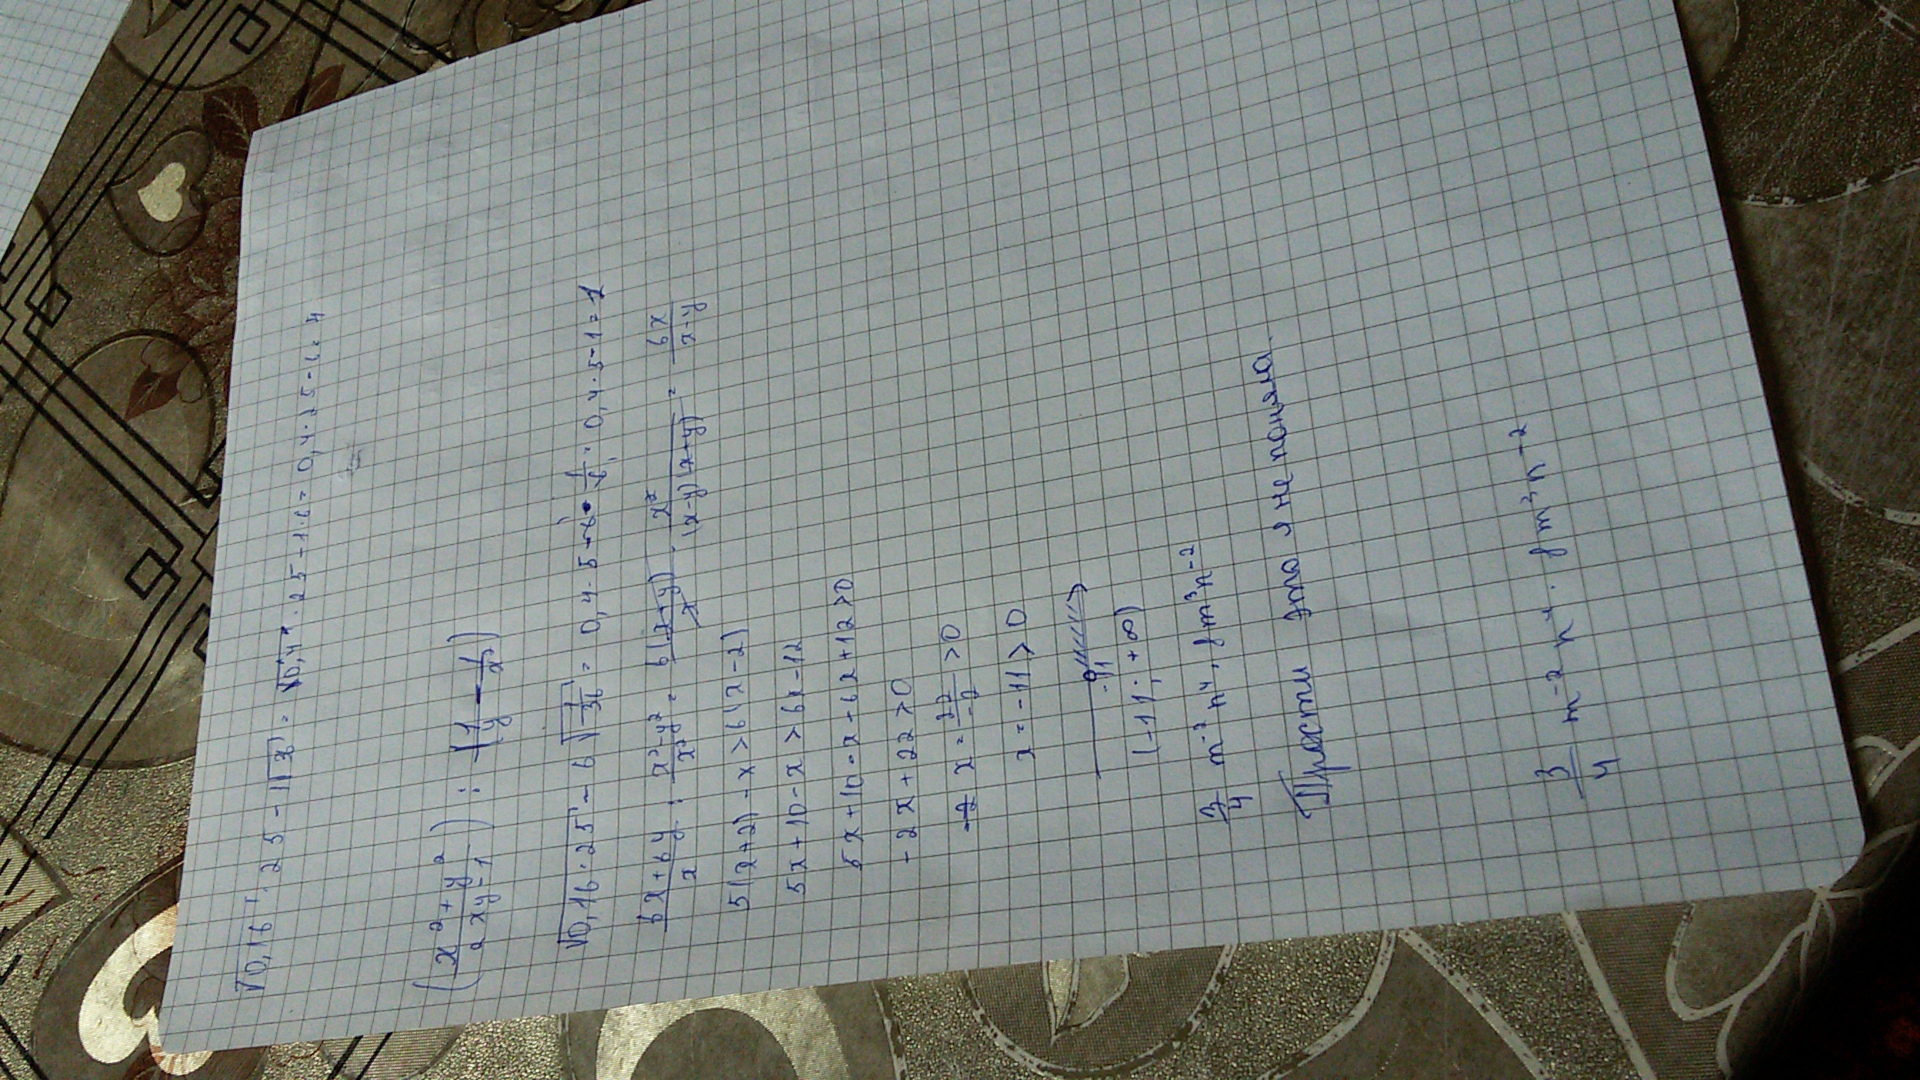 √0,16 · 25 - 1√36 = √0,4 · 25 - 1·6 = 0,4 · 25 - 6 = 4
(x²+y²/2xy - 1) : (1/y - 1/x)
√0,16·25 - 6√1/36 = 0,4·5 - 6 · 1/6 = 0,4·5-1 = 1
6x+6y/x : x²-y²/x² = 6(x+y)/x · x²/(x-y)(x+y) = 6x/x-y
5(x+2) - x > 6(x-2)
5x+10-x > 6x-12
5x+10-x-6x+12>0
-2x+22>0
x = 22/-2 >0
x = -11 > 0
-11
(-11; +∞)
3/4 m⁻²n⁴ · 8m³n⁻²
Прости это я не поняла.
3/4 m⁻²n⁴ · 8m³n⁻²